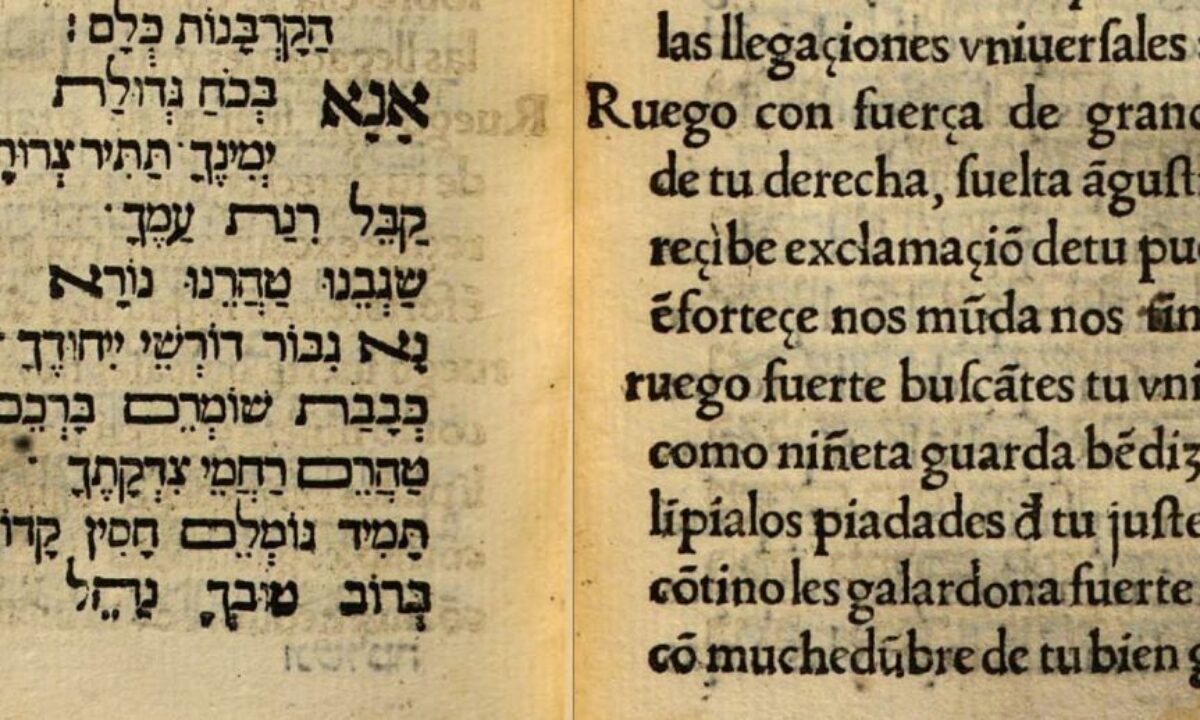 הַקָרְבָּנוֹת כֻּלָם :
אָנָא בְּכֹחַ גְּדוּלַת
יְמִינֶךָ תַּתִּיר צְרוּרָ
קַבֵּל רִנַת עַמֶךָ ·
שַׂגְבֵנוּ טַהֲרֵנוּ נוֹרָא
נָא גִבּוֹר דוֹרְשֵׁי יִיחוּדֶךָ ·
כְּבָבַת שׁוֹמְרֵם בָּרְכֵם
טַהֲרֵם רַחֲמֵי צִדְקָתֶךָ ·
תָּמִיד גוֹמְלֵם חָסִין קָדוֹ
בְּרוֹב טוּבְךָ נַהֵל
las llegaçiones vniuerſales
Ruego con fuerça de gran
de tu derecha, ſuelta ãguſt
reçibe exclamaçiõ detu pu
ẽforteçe nos mũda nos
ruego fuerte buſcãtes tu vni
como niñeta guarda bẽdiz
lĩpialos piadades đ tu juſte
cõtino les galardona fuerte
cõ muchedũbre de tu bien g